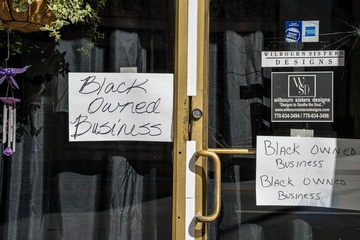 Black
Owned
Business
WILBOURN SISTERS
DESIGNS
WSD
wilbourn sisters designs
"Designs to Soothe the Soul."
770-634-3494 / 770-634-3496
BLACK OWNED
BUSINESS
BLACK OWNED
BUSINESS